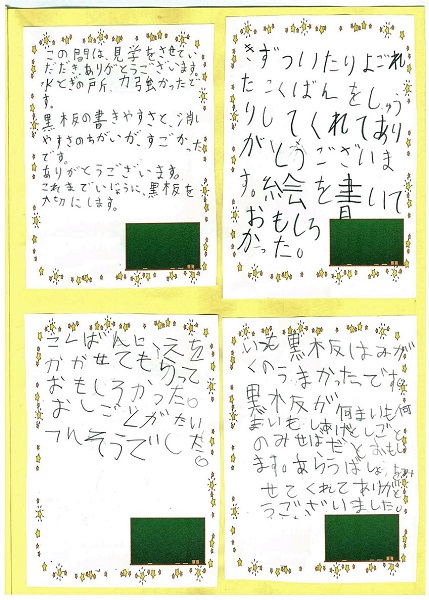 この間は、見学をさせてい
ただき、ありがとうございます。
水とぎの所、力強かったで
す。
黒板の書きやすさと、消し
やすさのちがいが、すごかった
です。
ありがとうございます。
これまでいじょうに、黒板を
大切にします。
きずついたりよごれ
たこくばんをしゅう
りしてくれてあり
がとうございま
す。絵を書いて
おもしろ
かった。
こくばんに、えを
かかせてもらって
おもしろかった。
おしごとがたい
へんそうでした。
いつも黒板はみが
くのうまかったです。
黒板が何まいも何
まいもしあげとしごと
のみせばだとおもい
ます。あらうばしょ
せてくれてありがと
うございました。